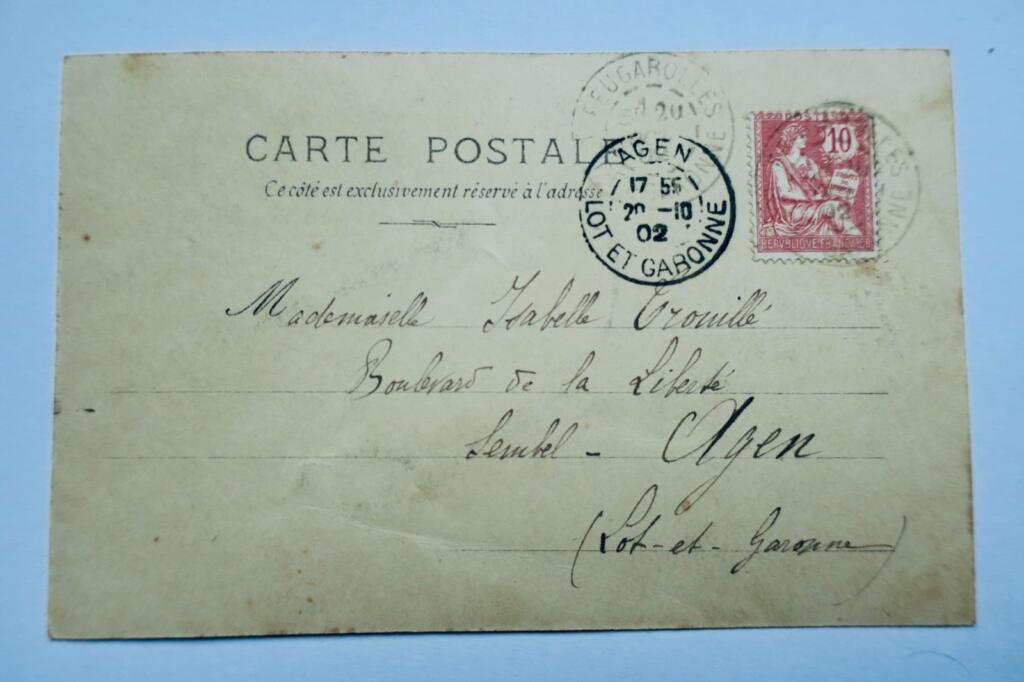 FEUGAROLLES
20
GARONNE
CARTE POSTALE
Ce côté est exclusivement réservé à l'adresse
AGEN
17 55
20 -10
02
LOT ET GARONNE
POSTES
10
REPVBLIQVE FRANÇAISE
Mademoiselle Isabelle Trouillé
Boulevard de la Liberté
Sembel - Agen
(Lot-et-Garonne)